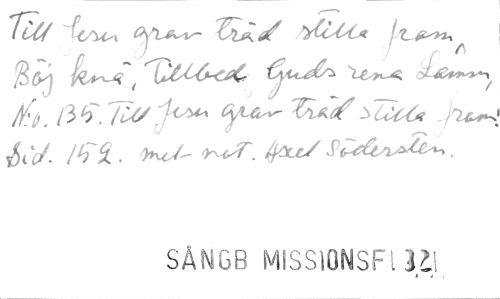 Till Jesu grav träd stilla fram,
Böj knä, Tillbed Guds rena Lamm,
N:o. 135. Till Jesu grav träd stilla fram!
Sid. 152. met not. Axel Södersten.
SÅNGB MISSIONSF 1321